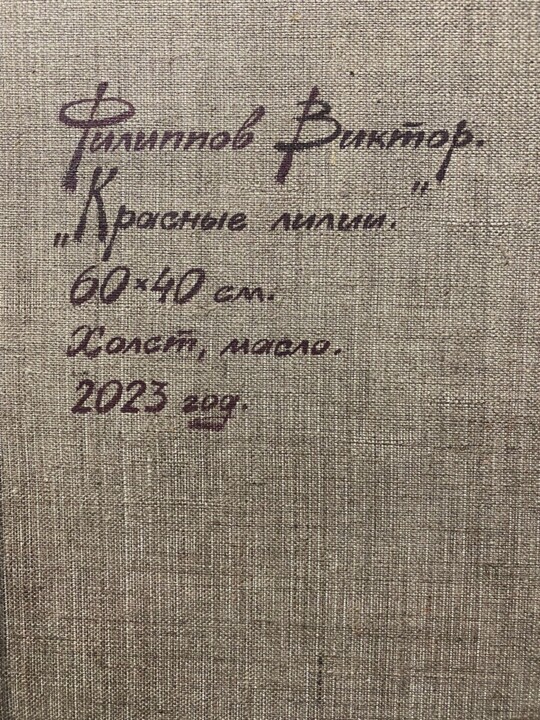 Филиппов Виктор.
„Красные лилии."
60×40 см.
Холст, масло.
2023 год.